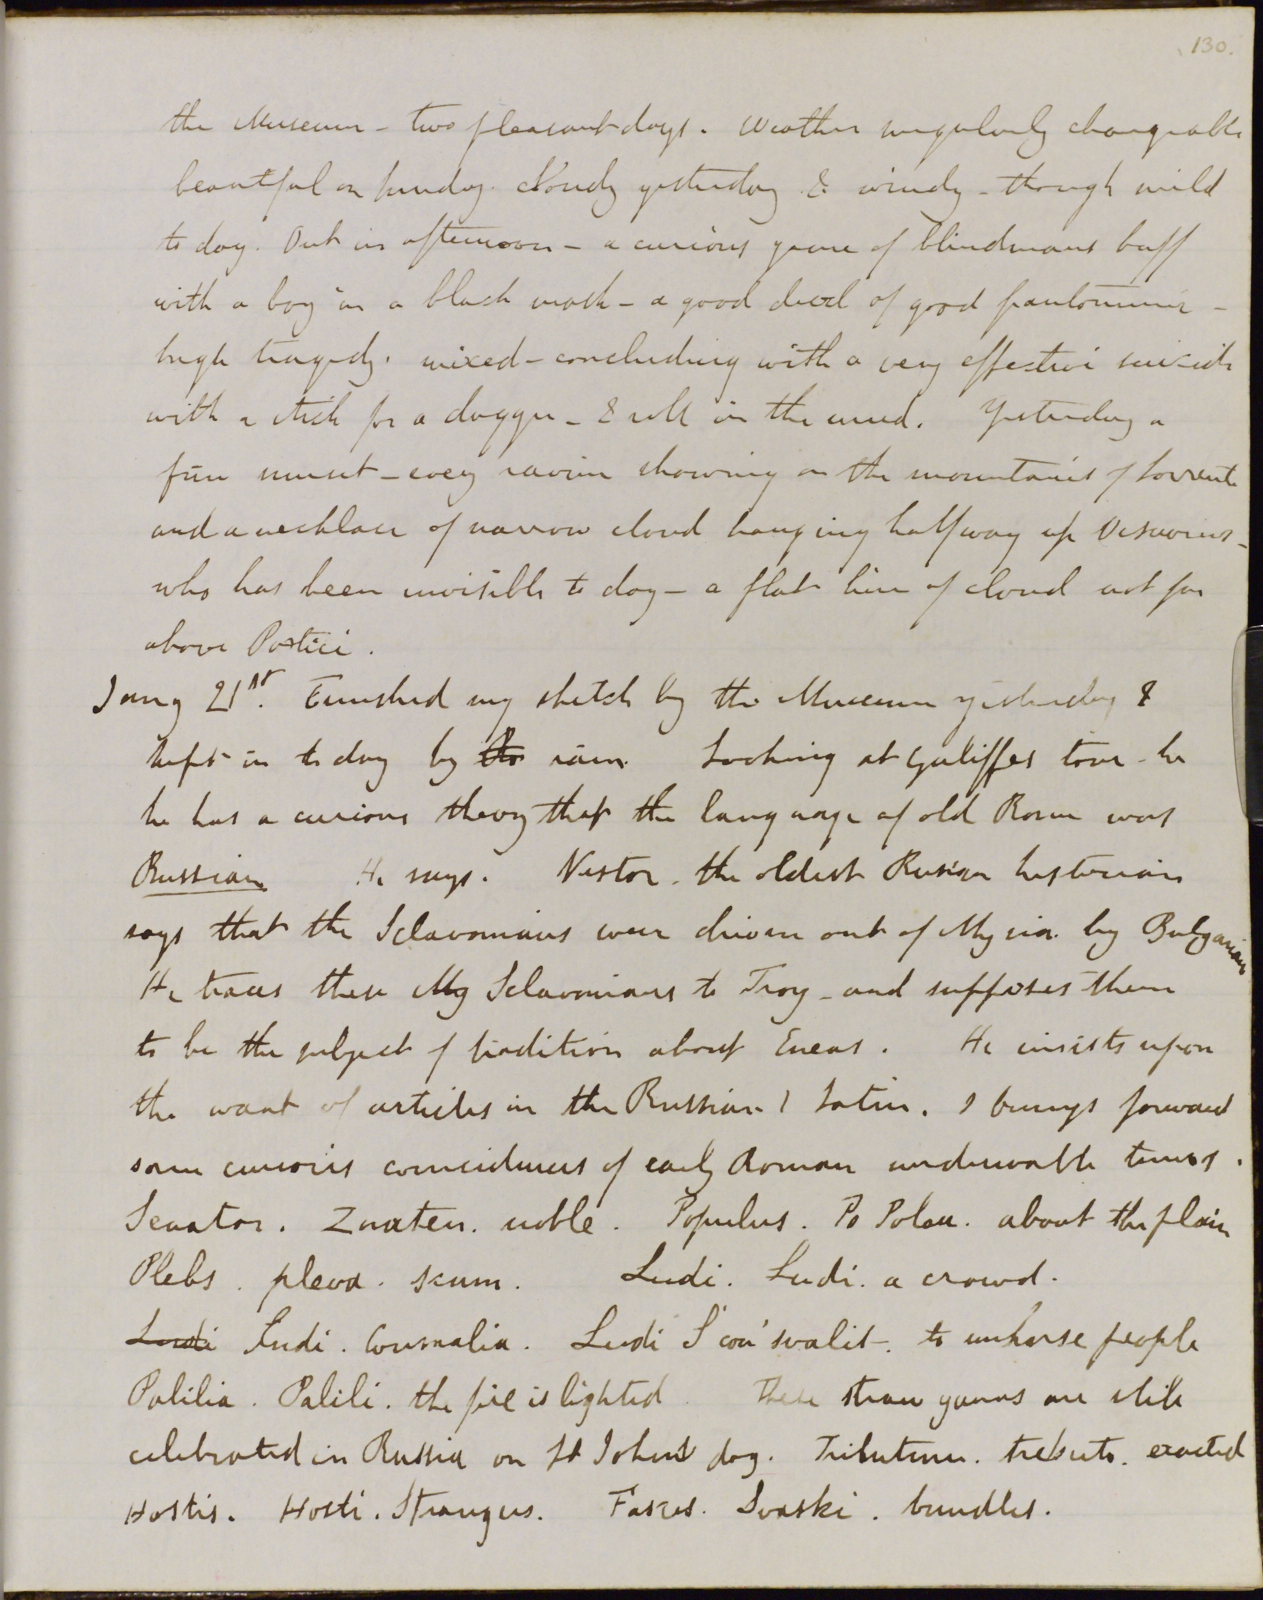 130.
the Museum - two pleasant days. Weather singularly changeable
beautiful on Sunday. Cloudy yesterday & windy - though mild
to day. Out in afternoon - a curious game of blindmans buff
with a boy in a black mask - a good deal of good pantomime -
high tragedy. mixed - concluding with a very effective suicide
with a stick for a dagger - & roll in the mud. Yesterday a
fine sunset - every ravine showing on the mountains of Sorrento
and a necklace of narrow cloud hanging halfway up Vesuvius -
who has been invisible to day - a flat line of cloud not far
above Portici.
Jany 21st. Finished my sketch by the Museum yesterday &
kept in to day by the rain. Looking at Galiffes tour - he
he has a curious theory that the language of old Rome was
Russian He says. Nestor. the oldest Russian historian
says that the Sclavonians were driven out of Mysia by Bulgarians
He traces these My Sclavonians to Troy - and supposes them
to be the subject of tradition about Eneas. He insists upon
the want of articles in the Russian & Latin. & brings forward
some curious coincidences of early Roman underivable terms.
Senator. Znaten. noble. Populus. Po Polou. about the plain
Plebs. pleva. scum. Ludi. Ludi. a crowd.
Ludi Ludi. Consualia. Ludi S'con'svalit. to unhorse people
Palilia. Palili. the fire is lighted These straw games are still
celebrated in Russia on St Johns day. Tributum. trebuto. exacted
Hostis. Hosti. Strangers. Fasces. Svaski. bundles.